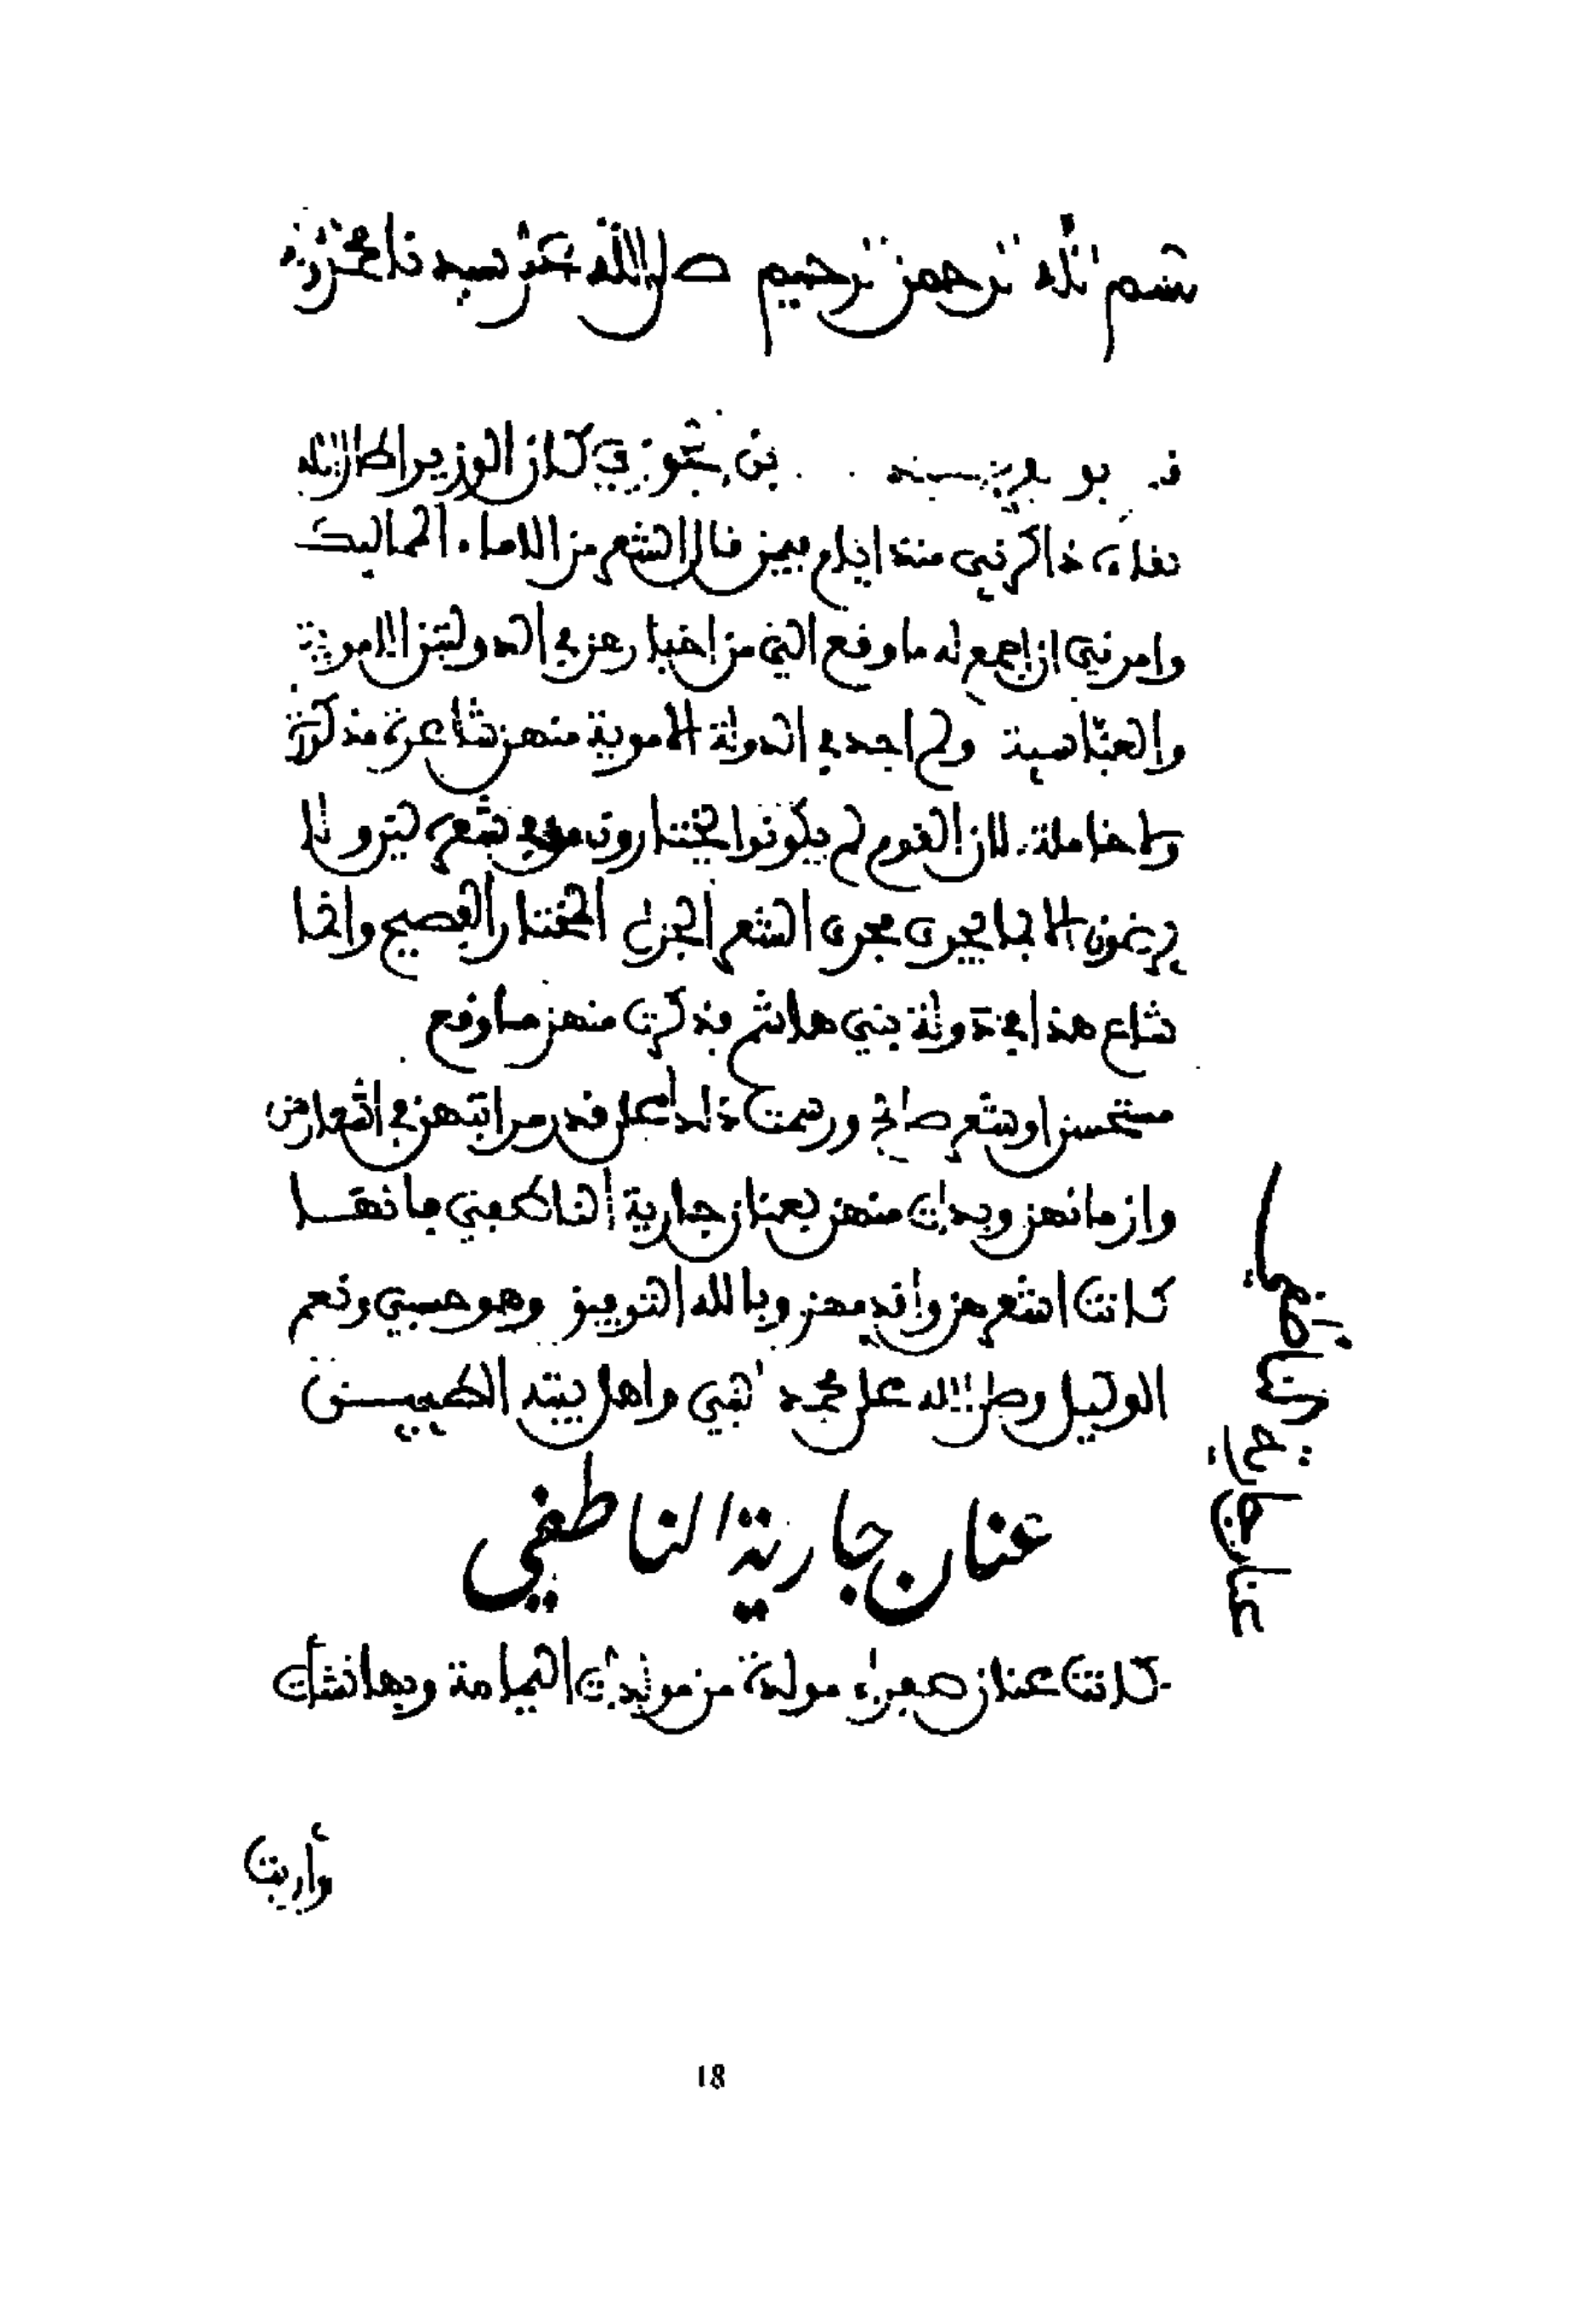 بسم الله الرحمن الرحيم صلى الله على سيدنا محمد وآله
بو كان الوزير اطال الله
بقاءه ذاكرني منذ ايام فيمن قال الشعر من الاماء المماليك
وامرني ان اجمع له ما وقع الي من اخبارهن في الدولتين الاموية
والعباسية ولم اجد في الدولة الاموية منهن شاعرة مذكورة
ولا خاملة لان القوم لم يكونوا يختارون من في شعره لين ولا
يرضون الا بما يجري مجرى الشعر الجزل المختار الفصيح وانما
شاع هذا في دولة بني هاشم فذكرت منهن ما وقع
مستحسن او شعر صالح ورسمت ذلك على قدر مراتبهن في
وازمانهن وبدات منهن بعنان جارية الناطفي فانها
كانت اشعرهن واقدمهن وبالله التوفيق وهو حسبي ونعم
الوكيل وصلى الله على محمد النبي واهل بيته الطيبين
عنان جارية الناطفي
كانت عنان صفراء مولدة من مولدات اليمامة وبها نشأت
عنان جارية الناطفي
18